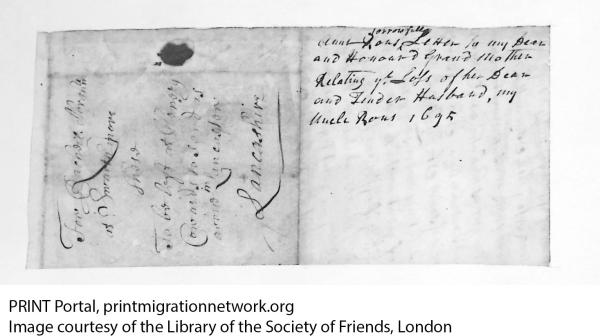 For
at Swarthmore
These
To be left at
Cowards
in Lancaster
Lancashire
Aunt Rous sorrowfull Letter to my Dear
and Honourd Grand Mother
Relating ye Loss of her Dear
and Tender Husband, my
Uncle Rous 1695
PRINT Portal, printmigrationnetwork.org
Image courtesy of the Library of the Society of Friends, London